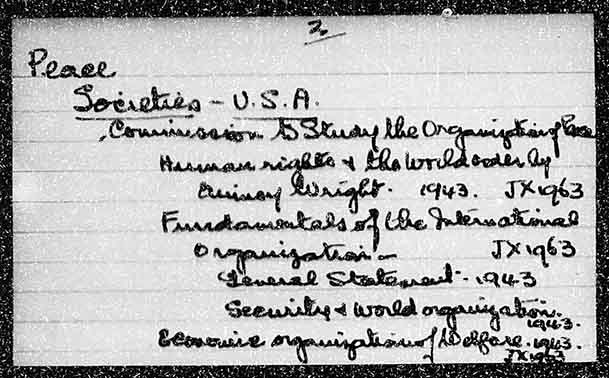 2
Peace
Societies - U.S.A.
Commission to Study the Organization of Peace
Human rights & the world order by
Quincy Wright. 1943. JX1963
Fundamentals of the International
Organization - JX1963
General Statement. 1943
Security & world organization.
1943.
Economic organization of Welfare. 1943.
JX1963